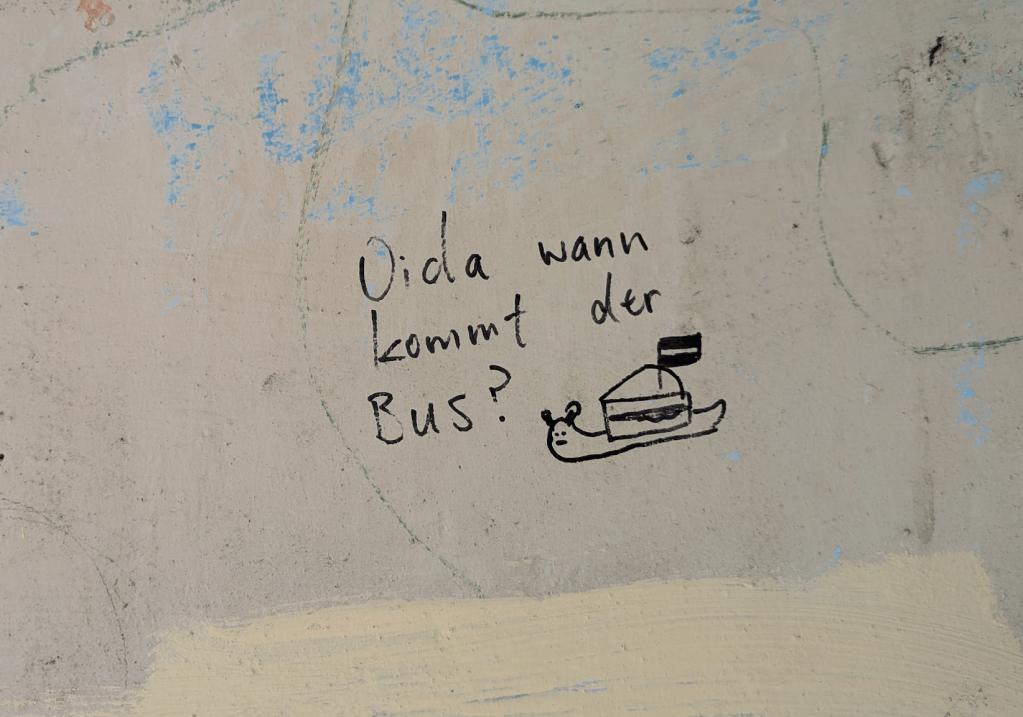 Oida wann
kommt der
Bus?